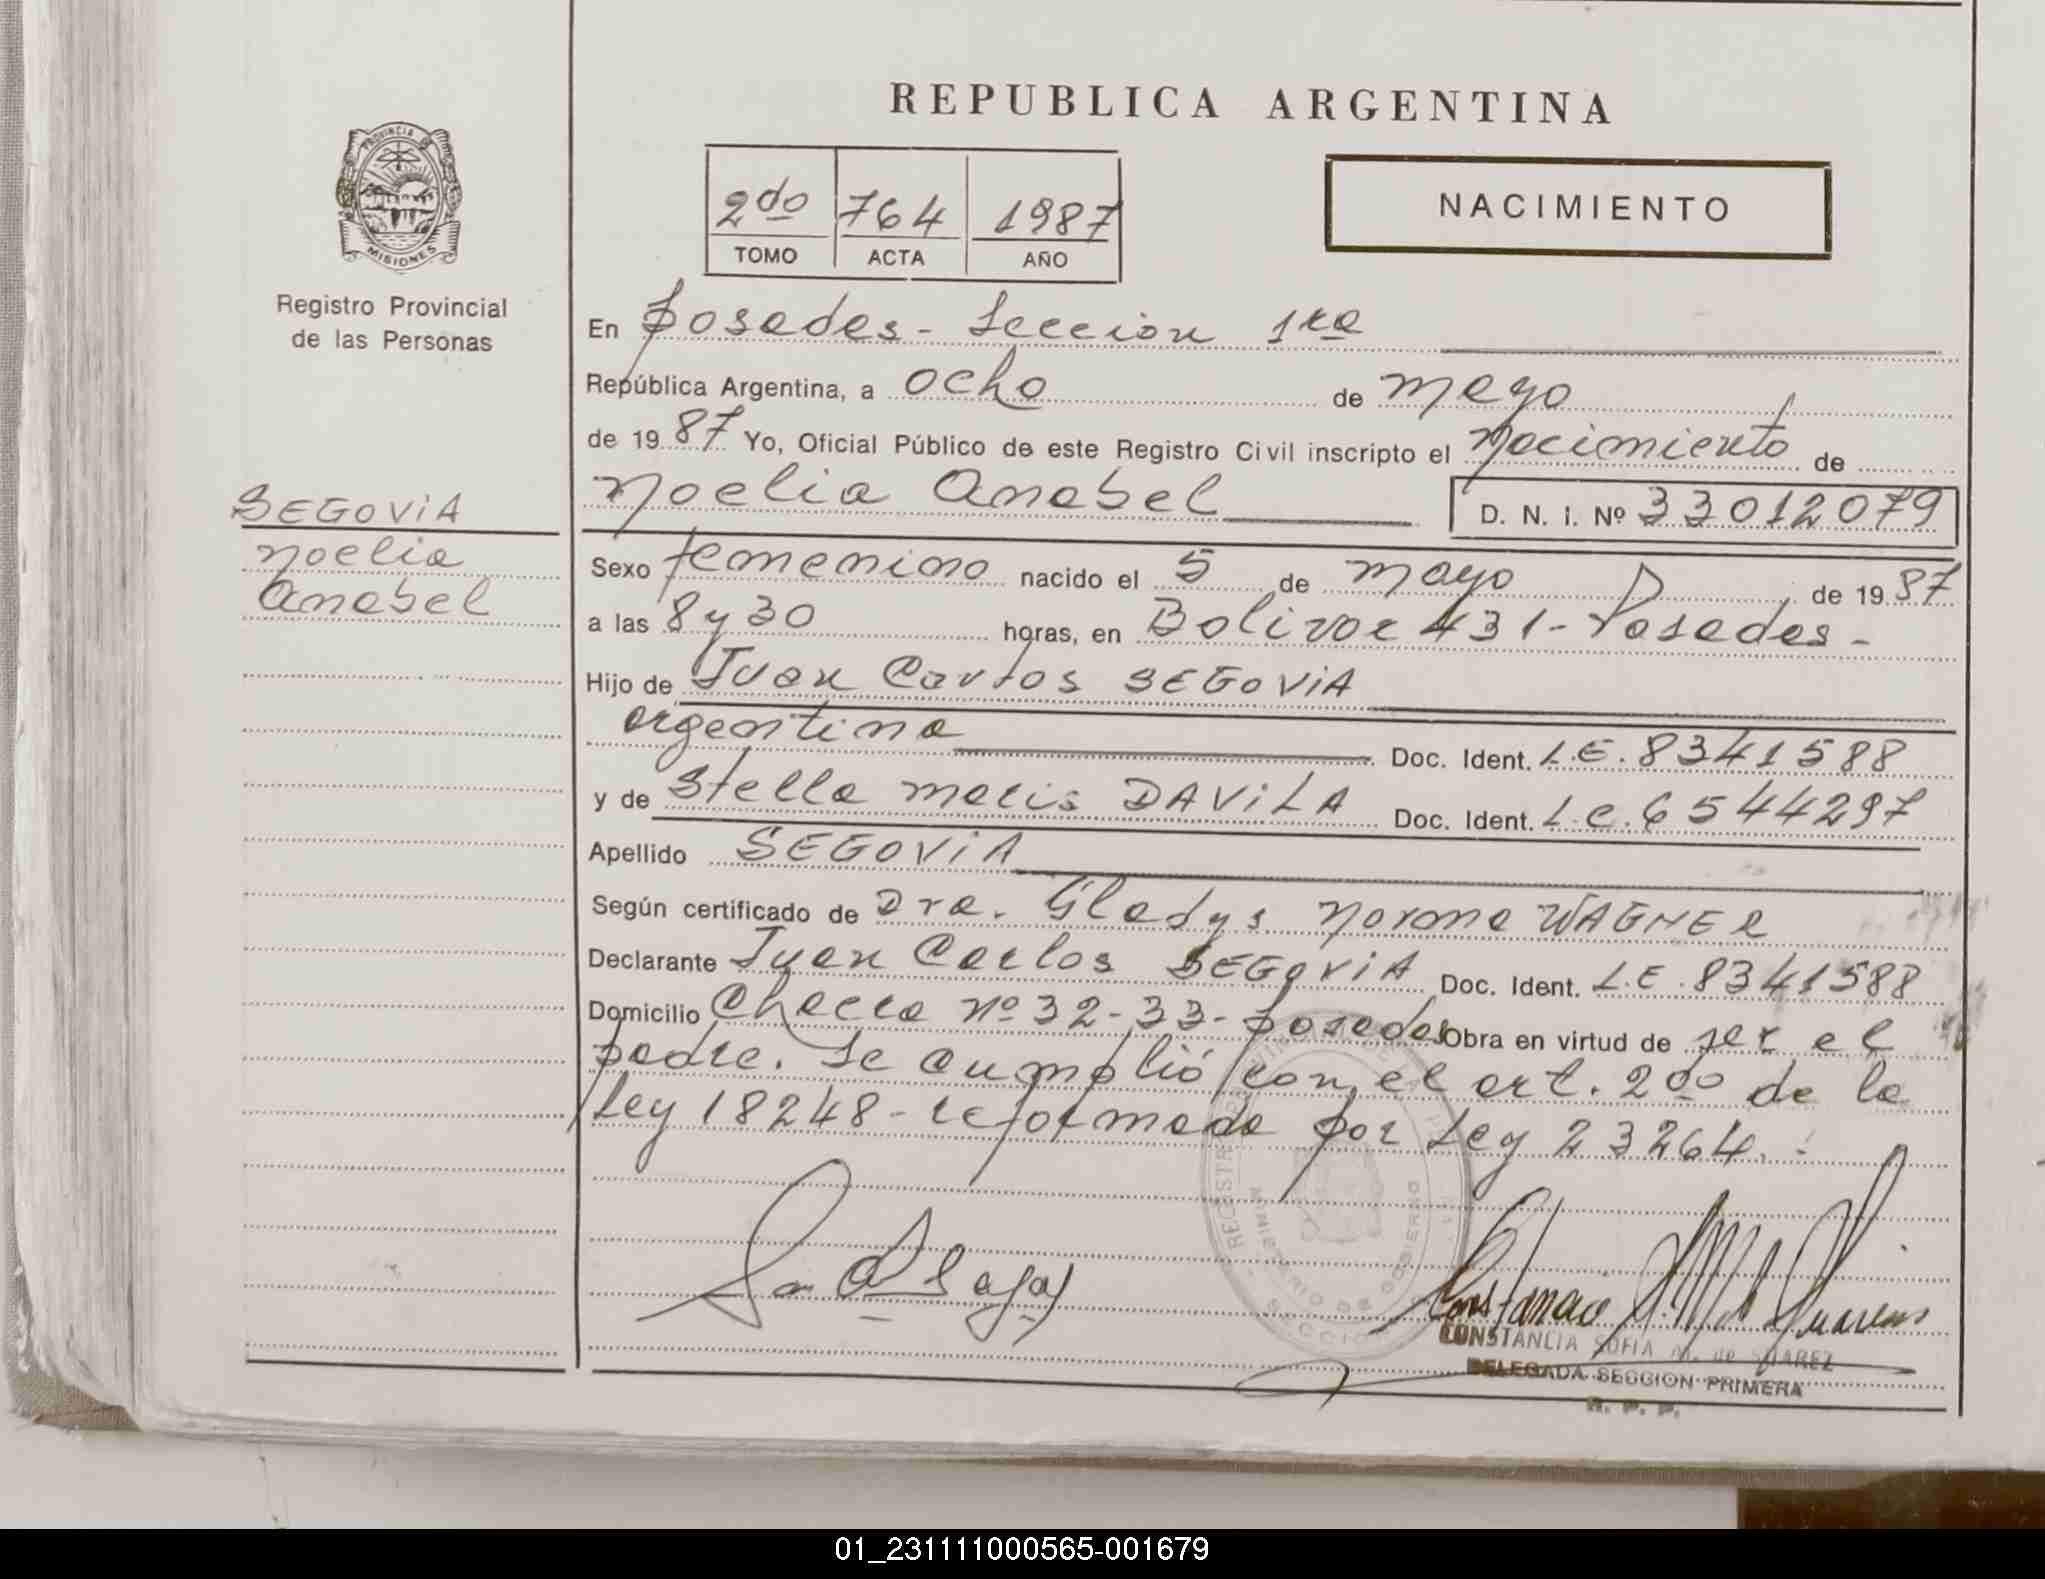 REPUBLICA ARGENTINA
PROVINCIA DE
MISIONES
Registro Provincial
de las Personas
2do 764 1987
TOMO ACTA AÑO
NACIMIENTO
En Posadas - Sección 1ra
República Argentina, a ocho de mayo
de 1987 Yo, Oficial Público de este Registro Civil inscripto el Nacimiento de
Noelia Anabel D. N. I. Nº 33012079
SEGOViA
Noelia
Anabel
Sexo femenino nacido el 5 de mayo de 1987
a las 8 y 30 horas, en Bolivar 431 - Posadas -
Hijo de Juan Carlos SEGOViA
argentino Doc. Ident. L.E. 8341588
y de Stella Maris DAViLA Doc. Ident. L.C. 6544297
Apellido SEGOViA
Según certificado de Dra. Gladys Norma WAGNER
Declarante Juan Carlos SEGOViA Doc. Ident. L.E. 8341588
Domicilio Chacra Nº 32-33 - Posadas Obra en virtud de ser el
padre. Se cumplió con el art. 2do de la
Ley 18248 - reformada por Ley 23264.
MINISTERIO DE GOBIERNO
CONSTANCIA SOFIA M. de SUAREZ
DELEGADA SECCION PRIMERA
R. P. P.
01_231111000565-001679